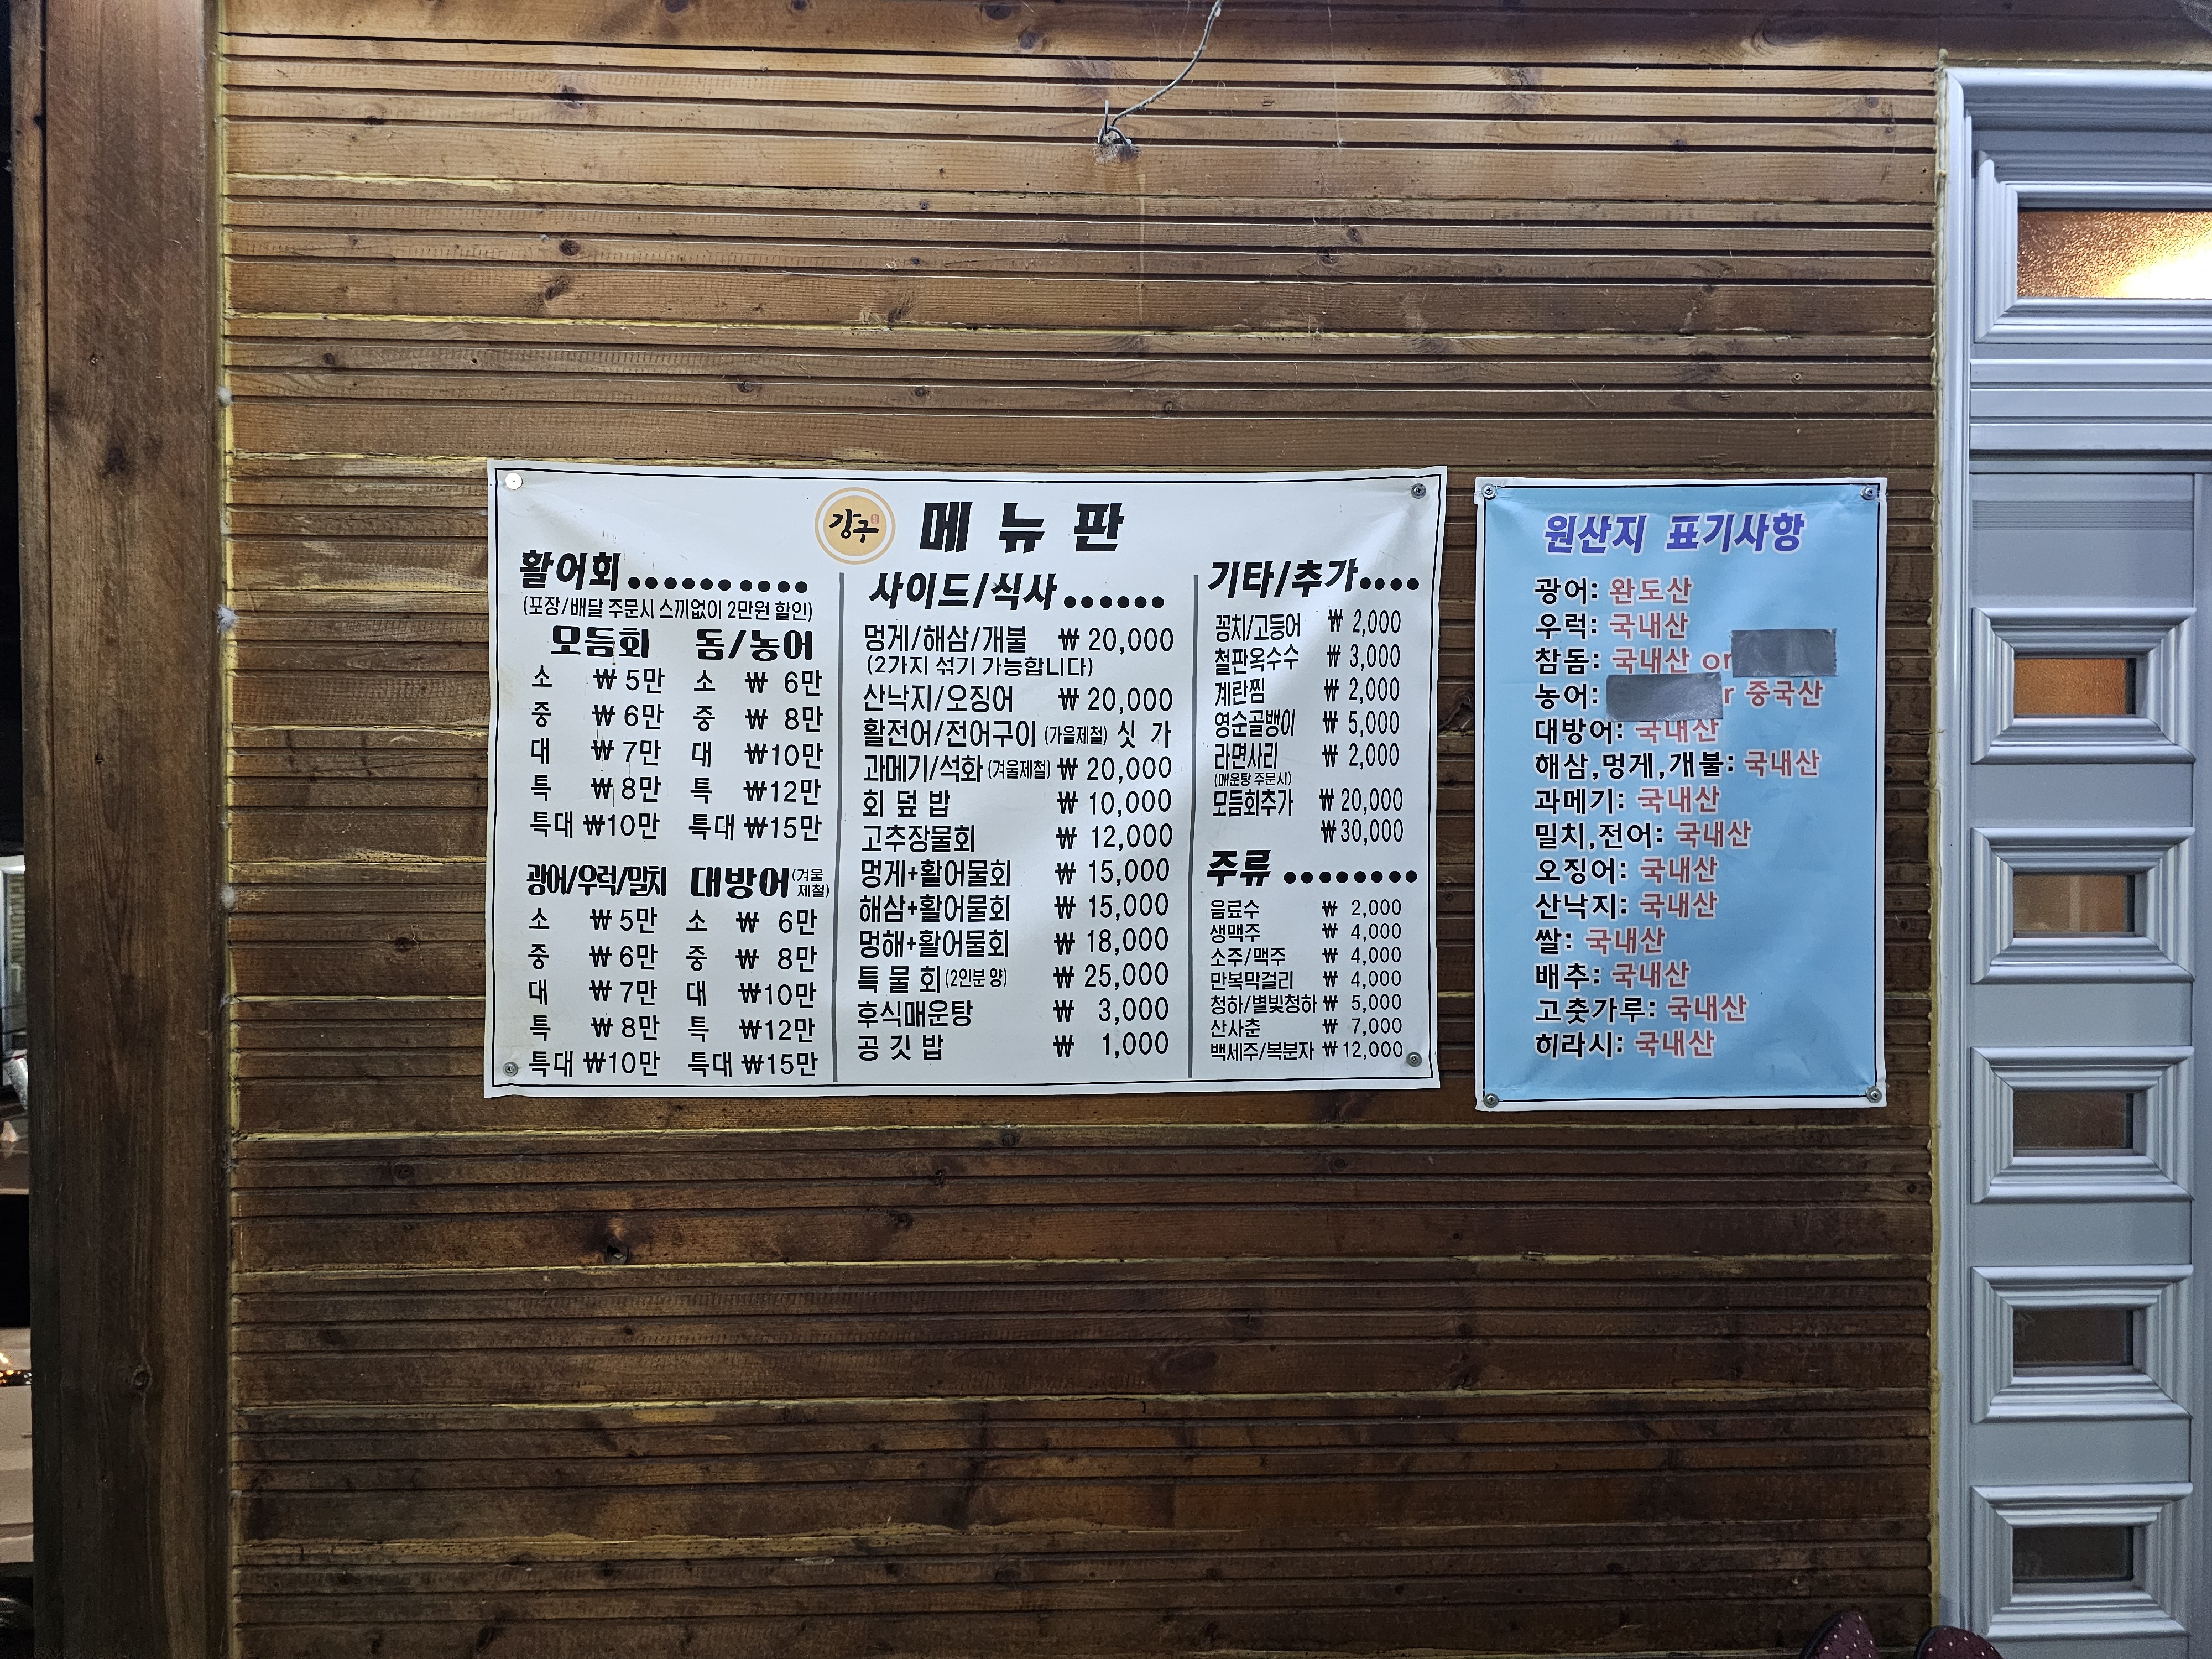 강구
메뉴판
활어회
(포장/배달 주문시 스끼없이 2만원 할인)
모듬회
소 ₩ 5만
중 ₩ 6만
대 ₩ 7만
특 ₩ 8만
특대 ₩10만
돔/농어
소 ₩ 6만
중 ₩ 8만
대 ₩10만
특 ₩12만
특대 ₩15만
광어/우럭/밀치
소 ₩ 5만
중 ₩ 6만
대 ₩ 7만
특 ₩ 8만
특대 ₩10만
대방어(겨울제철)
소 ₩ 6만
중 ₩ 8만
대 ₩10만
특 ₩12만
특대 ₩15만
사이드/식사
멍게/해삼/개불 ₩ 20,000
(2가지 섞기 가능합니다)
산낙지/오징어 ₩ 20,000
활전어/전어구이 (가을제철) 싯 가
과메기/석화 (겨울제철) ₩ 20,000
회 덮 밥 ₩ 10,000
고추장물회 ₩ 12,000
멍게+활어물회 ₩ 15,000
해삼+활어물회 ₩ 15,000
멍해+활어물회 ₩ 18,000
특 물 회(2인분 양) ₩ 25,000
후식매운탕 ₩ 3,000
공 깃 밥 ₩ 1,000
기타/추가
꽁치/고등어 ₩ 2,000
철판옥수수 ₩ 3,000
계란찜 ₩ 2,000
영순골뱅이 ₩ 5,000
라면사리 ₩ 2,000
(매운탕 주문시)
모듬회추가 ₩ 20,000
₩30,000
주류
음료수 ₩ 2,000
생맥주 ₩ 4,000
소주/맥주 ₩ 4,000
만복막걸리 ₩ 4,000
청하/별빛청하 ₩ 5,000
산사춘 ₩ 7,000
백세주/복분자 ₩ 12,000
원산지 표기사항
광어: 완도산
우럭: 국내산
참돔: 국내산 or
농어: r 중국산
대방어: 국내산
해삼,멍게,개불: 국내산
과메기: 국내산
밀치,전어: 국내산
오징어: 국내산
산낙지: 국내산
쌀: 국내산
배추: 국내산
고춧가루: 국내산
히라시: 국내산